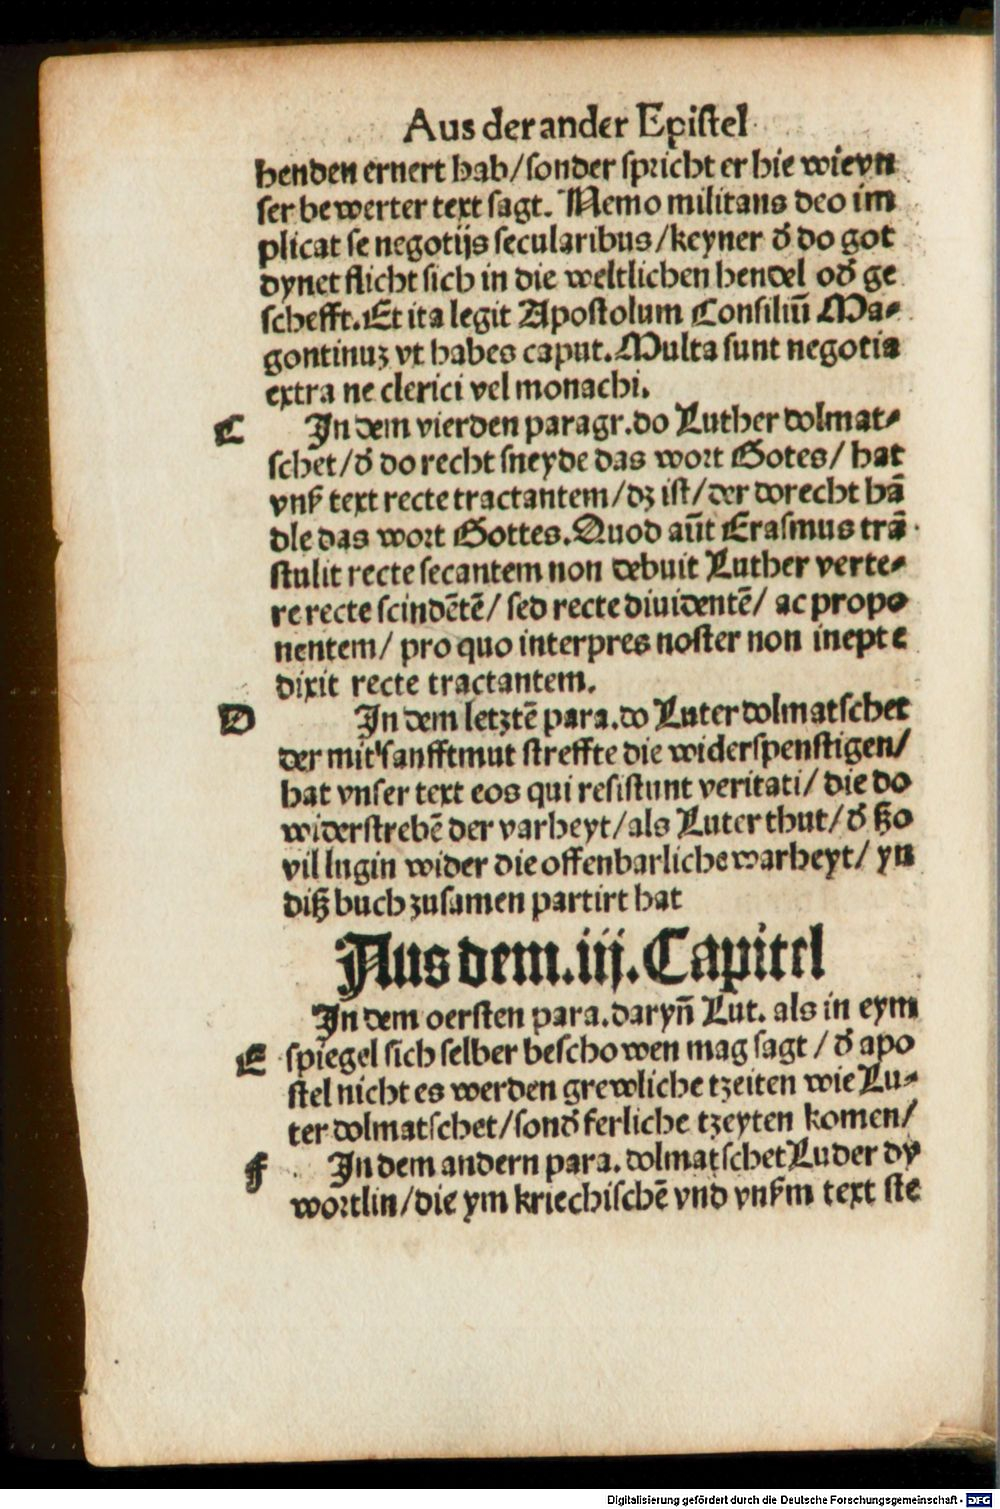 Aus der ander Epistel
henden ernert hab/sonder spricht er hie wie vn
ser bewerter text sagt. Nemo militans deo im
plicat se negotijs secularibus/keyner d̄ do got
dynet flicht sich in die weltlichen hendel od̄ ge
schefft. Et ita legit Apostolum Consiliū Ma⸗
gontinuʒ vt habes caput. Multa sunt negotia
extra ne clerici vel monachi.
C In dem vierden paragr. do Luther dolmat⸗
schet/d̄ do recht sneyde das wort Gotes/ hat
vnß text recte tractantem/dʒ ist/der do recht hā
dle das wort Gottes. Quod aūt Erasmus trā
stulit recte secantem non debuit Luther verte⸗
re recte scindētē/ sed recte diuidentē/ ac propo
nentem/ pro quo interpres noster non inepte
dixit recte tractantem.
D In dem letztē para. do Luter dolmatschet
der mit sanfftmut streffte die widerspenstigen/
hat vnser text eos qui resistunt veritati/ die do
widerstrebē der varheyt/als Luter thut/d̄ ßo
vil lugin wider die offenbarliche warheyt/ yn
diß buch zusamen partirt hat
Aus dem .iij. Capitel
In dem oersten para. daryn̄ Lut. als in eym
E spiegel sich selber beschowen mag sagt /d̄ apo
stel nicht es werden grewliche tzeiten wie Lu⸗
ter dolmatschet/sond̄ ferliche tzeyten komen/
F In dem andern para. dolmatschet Luder dy
wortlin/die ym kriechischē vnd vnßm text ste
Digitalisierung gefördert durch die Deutsche Forschungsgemeinschaft - DFG